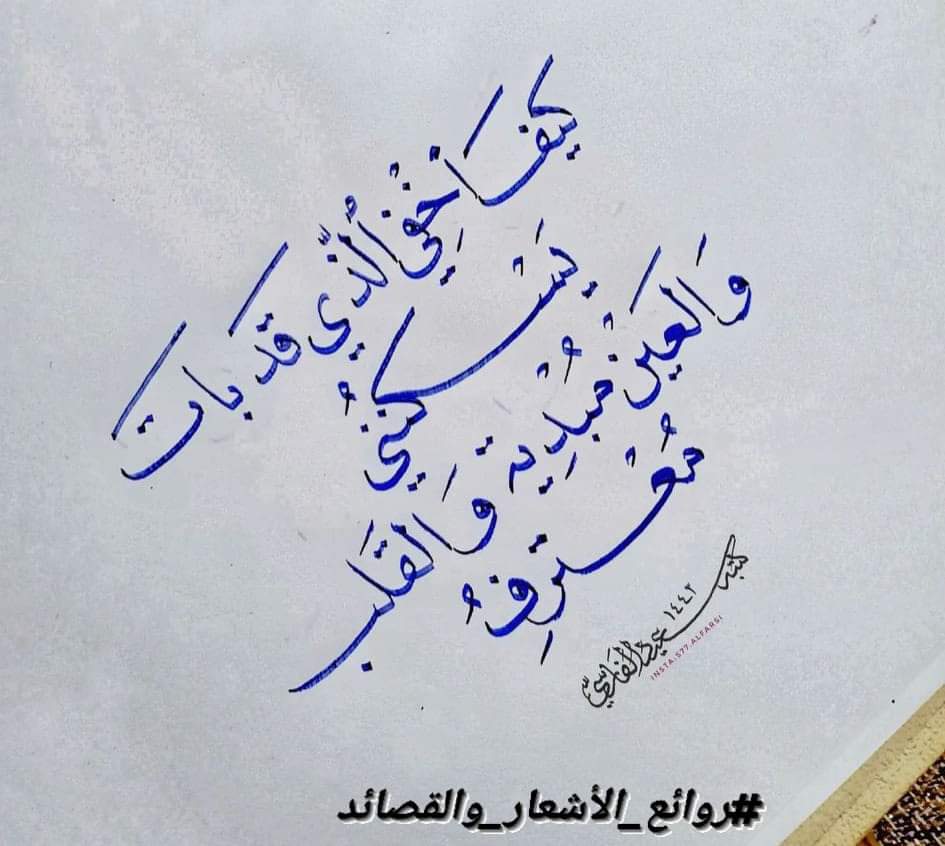 كيف اخْفي الُّذي قد بات
يَسْكنُني
وَالعينْ مُبْدِية وَالقَلب
مُعْترِفُ
كتبه سعيد الفارسي ١٤٤٢
INSTA:S77.ALFARSI
#روائع_الأشعار_والقصائد